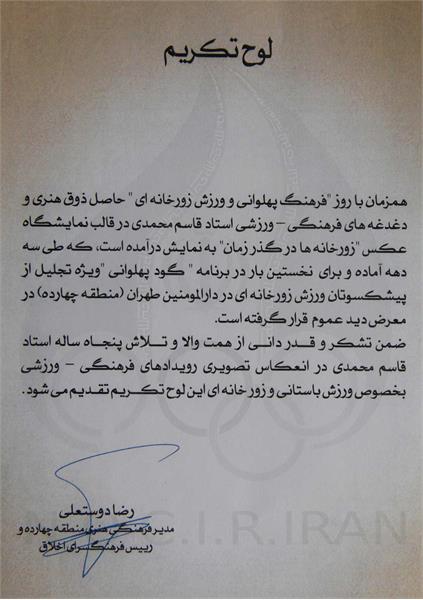 لوح تکریم
همزمان با روز "فرهنگ پهلوانی و ورزش زورخانه ای " حاصل ذوق هنری و
دغدغه های فرهنگی – ورزشی استاد قاسم محمدی در قالب نمایشگاه
عکس "زورخانه ها در گذر زمان" به نمایش درآمده است، که طی سه
دهه آماده و برای نخستین بار در برنامه " گود پهلوانی "ویژه تجلیل از
پیشکسوتان ورزش زورخانه ای در دارالمومنین طهران (منطقه چهارده) در
معرض دید عموم قرار گرفته است.
ضمن تشکر و قدر دانی از همت والا و تلاش پنجاه ساله استاد
قاسم محمدی در انعکاس تصویری رویدادهای فرهنگی – ورزشی
بخصوص ورزش باستانی و زور خانه ای این لوح تکریم تقدیم می شود.
رضا دوستعلی
مدیر فرهنگی هنری منطقه چهارده و
رییس فرهنگسرای اخلاق
C.I.R.IRAN